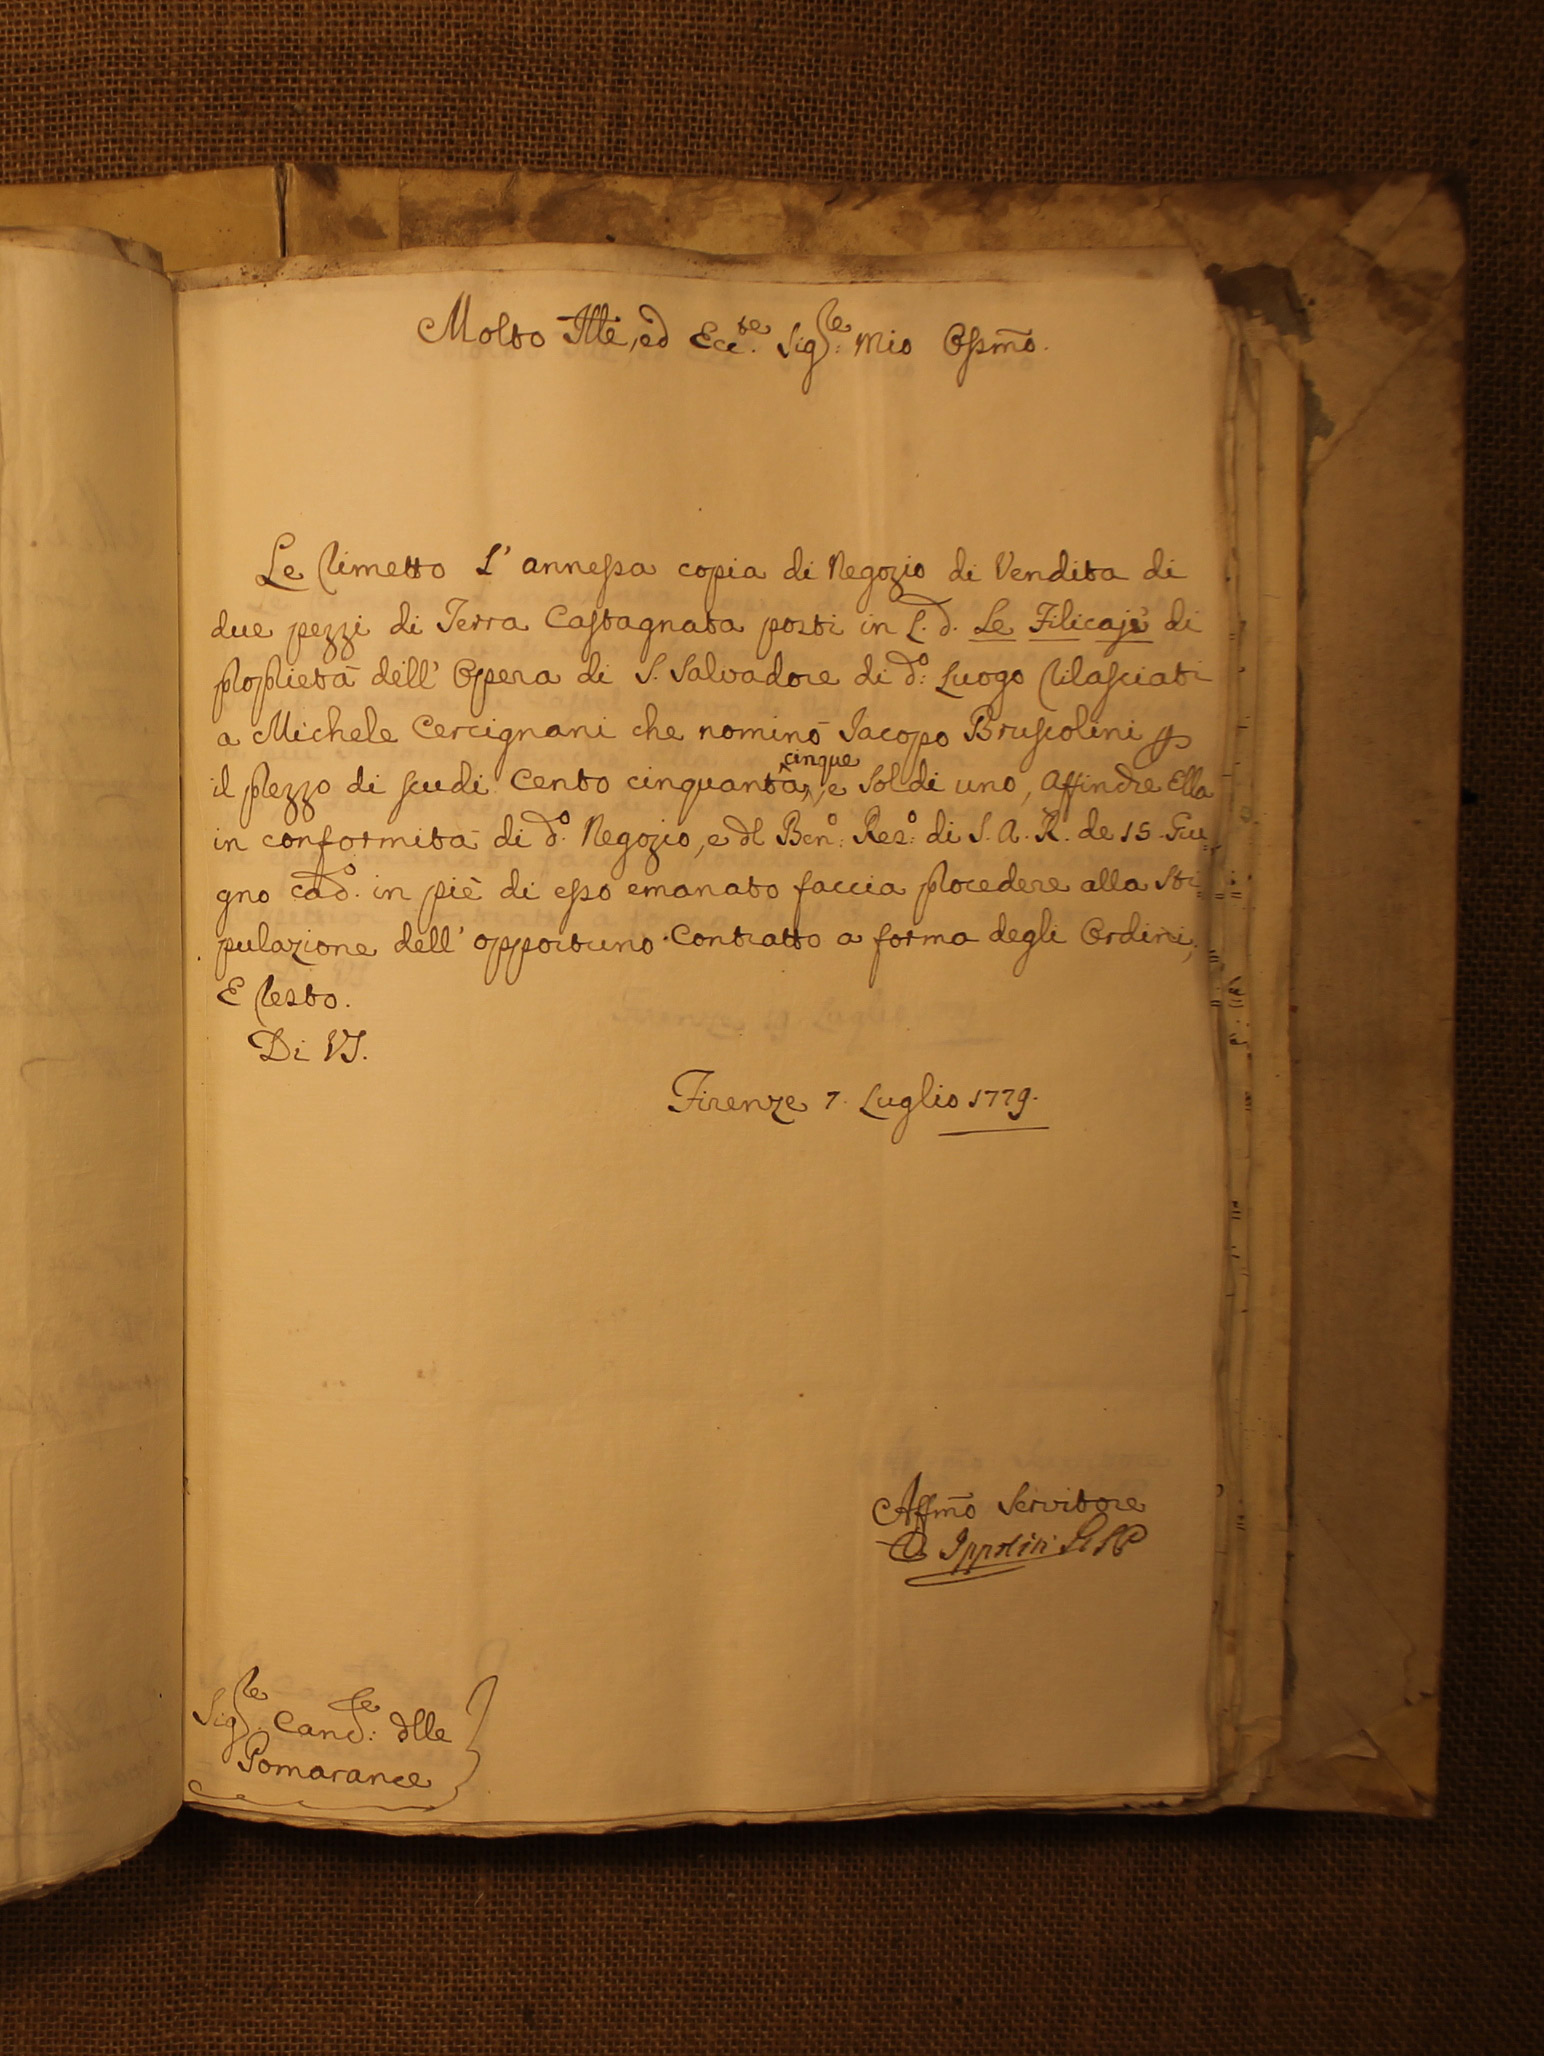 Molto Illẽ, ed Ecc.te Sig.re: mio Ossm̃o.
Le rimetto l' annessa copia di Negozio di Vendita di
due pezzi di Terra Castagnata posti in L. d. Le Filicaje di
proprietà dell' Opera di S. Salvadore di d.o: Luogo rilasciati
a Michele Cercignani che nominò Jacopo Bruscolini p
il prezzo di scudi Cento cinquanta cinque, e Soldi uno, affinche Ella
in conformità di d.o Negozio, e dl Ben.o: Res.o: di S. A. R. de 15. Giu=
gno cad.o. in piè di esso emanato faccia procedere alla sti=
pulazione dell' opportuno Contratto a forma degli Ordini,
E resto.
Di VS.
Firenze 7. Luglio 1779.
Affm̃o Servitore
Ippoliti
Sig.re: Canc.re: dlle
Pomarance